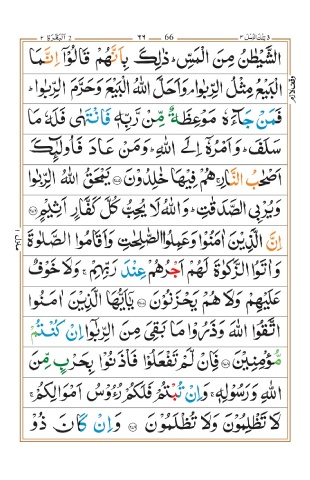 تلك الرسل ٣ 66 ٦٦ البقرة ٢
الشَّيْطٰنُ مِنَ الْمَسِّ ؕ ذٰلِكَ بِاَنَّهُمْ قَالُوْۤا اِنَّمَا
الْبَيْعُ مِثْلُ الرِّبٰوا ۘ وَاَحَلَّ اللّٰهُ الْبَيْعَ وَحَرَّمَ الرِّبٰوا ؕ
فَمَنْ جَآءَهٗ مَوْعِظَةٌ مِّنْ رَّبِّهٖ فَانْتَهٰى فَلَهٗ مَا
سَلَفَ ؕ وَاَمْرُهٗۤ اِلَى اللّٰهِ ؕ وَمَنْ عَادَ فَاُولٰٓئِكَ
اَصْحٰبُ النَّارِ ۚ هُمْ فِيْهَا خٰلِدُوْنَ ﴿٢٧٥﴾ يَمْحَقُ اللّٰهُ الرِّبٰوا
وَيُرْبِى الصَّدَقٰتِ ؕ وَاللّٰهُ لَا يُحِبُّ كُلَّ كَفَّارٍ اَثِيْمٍ ﴿٢٧٦﴾
اِنَّ الَّذِيْنَ اٰمَنُوْا وَعَمِلُوا الصّٰلِحٰتِ وَاَقَامُوا الصَّلٰوةَ
وَاٰتَوُا الزَّكٰوةَ لَهُمْ اَجْرُهُمْ عِنْدَ رَبِّهِمْ ۚ وَلَا خَوْفٌ
عَلَيْهِمْ وَلَا هُمْ يَحْزَنُوْنَ ﴿٢٧٧﴾ يٰۤاَيُّهَا الَّذِيْنَ اٰمَنُوا
اتَّقُوا اللّٰهَ وَذَرُوْا مَا بَقِىَ مِنَ الرِّبٰۤوا اِنْ كُنْتُمْ
مُّؤْمِنِيْنَ ﴿٢٧٨﴾ فَاِنْ لَّمْ تَفْعَلُوْا فَاْذَنُوْا بِحَرْبٍ مِّنَ
اللّٰهِ وَرَسُوْلِهٖ ۚ وَاِنْ تُبْتُمْ فَلَكُمْ رُءُوْسُ اَمْوَالِكُمْ ۚ
لَا تَظْلِمُوْنَ وَلَا تُظْلَمُوْنَ ﴿٢٧٩﴾ وَاِنْ كَانَ ذُوْ